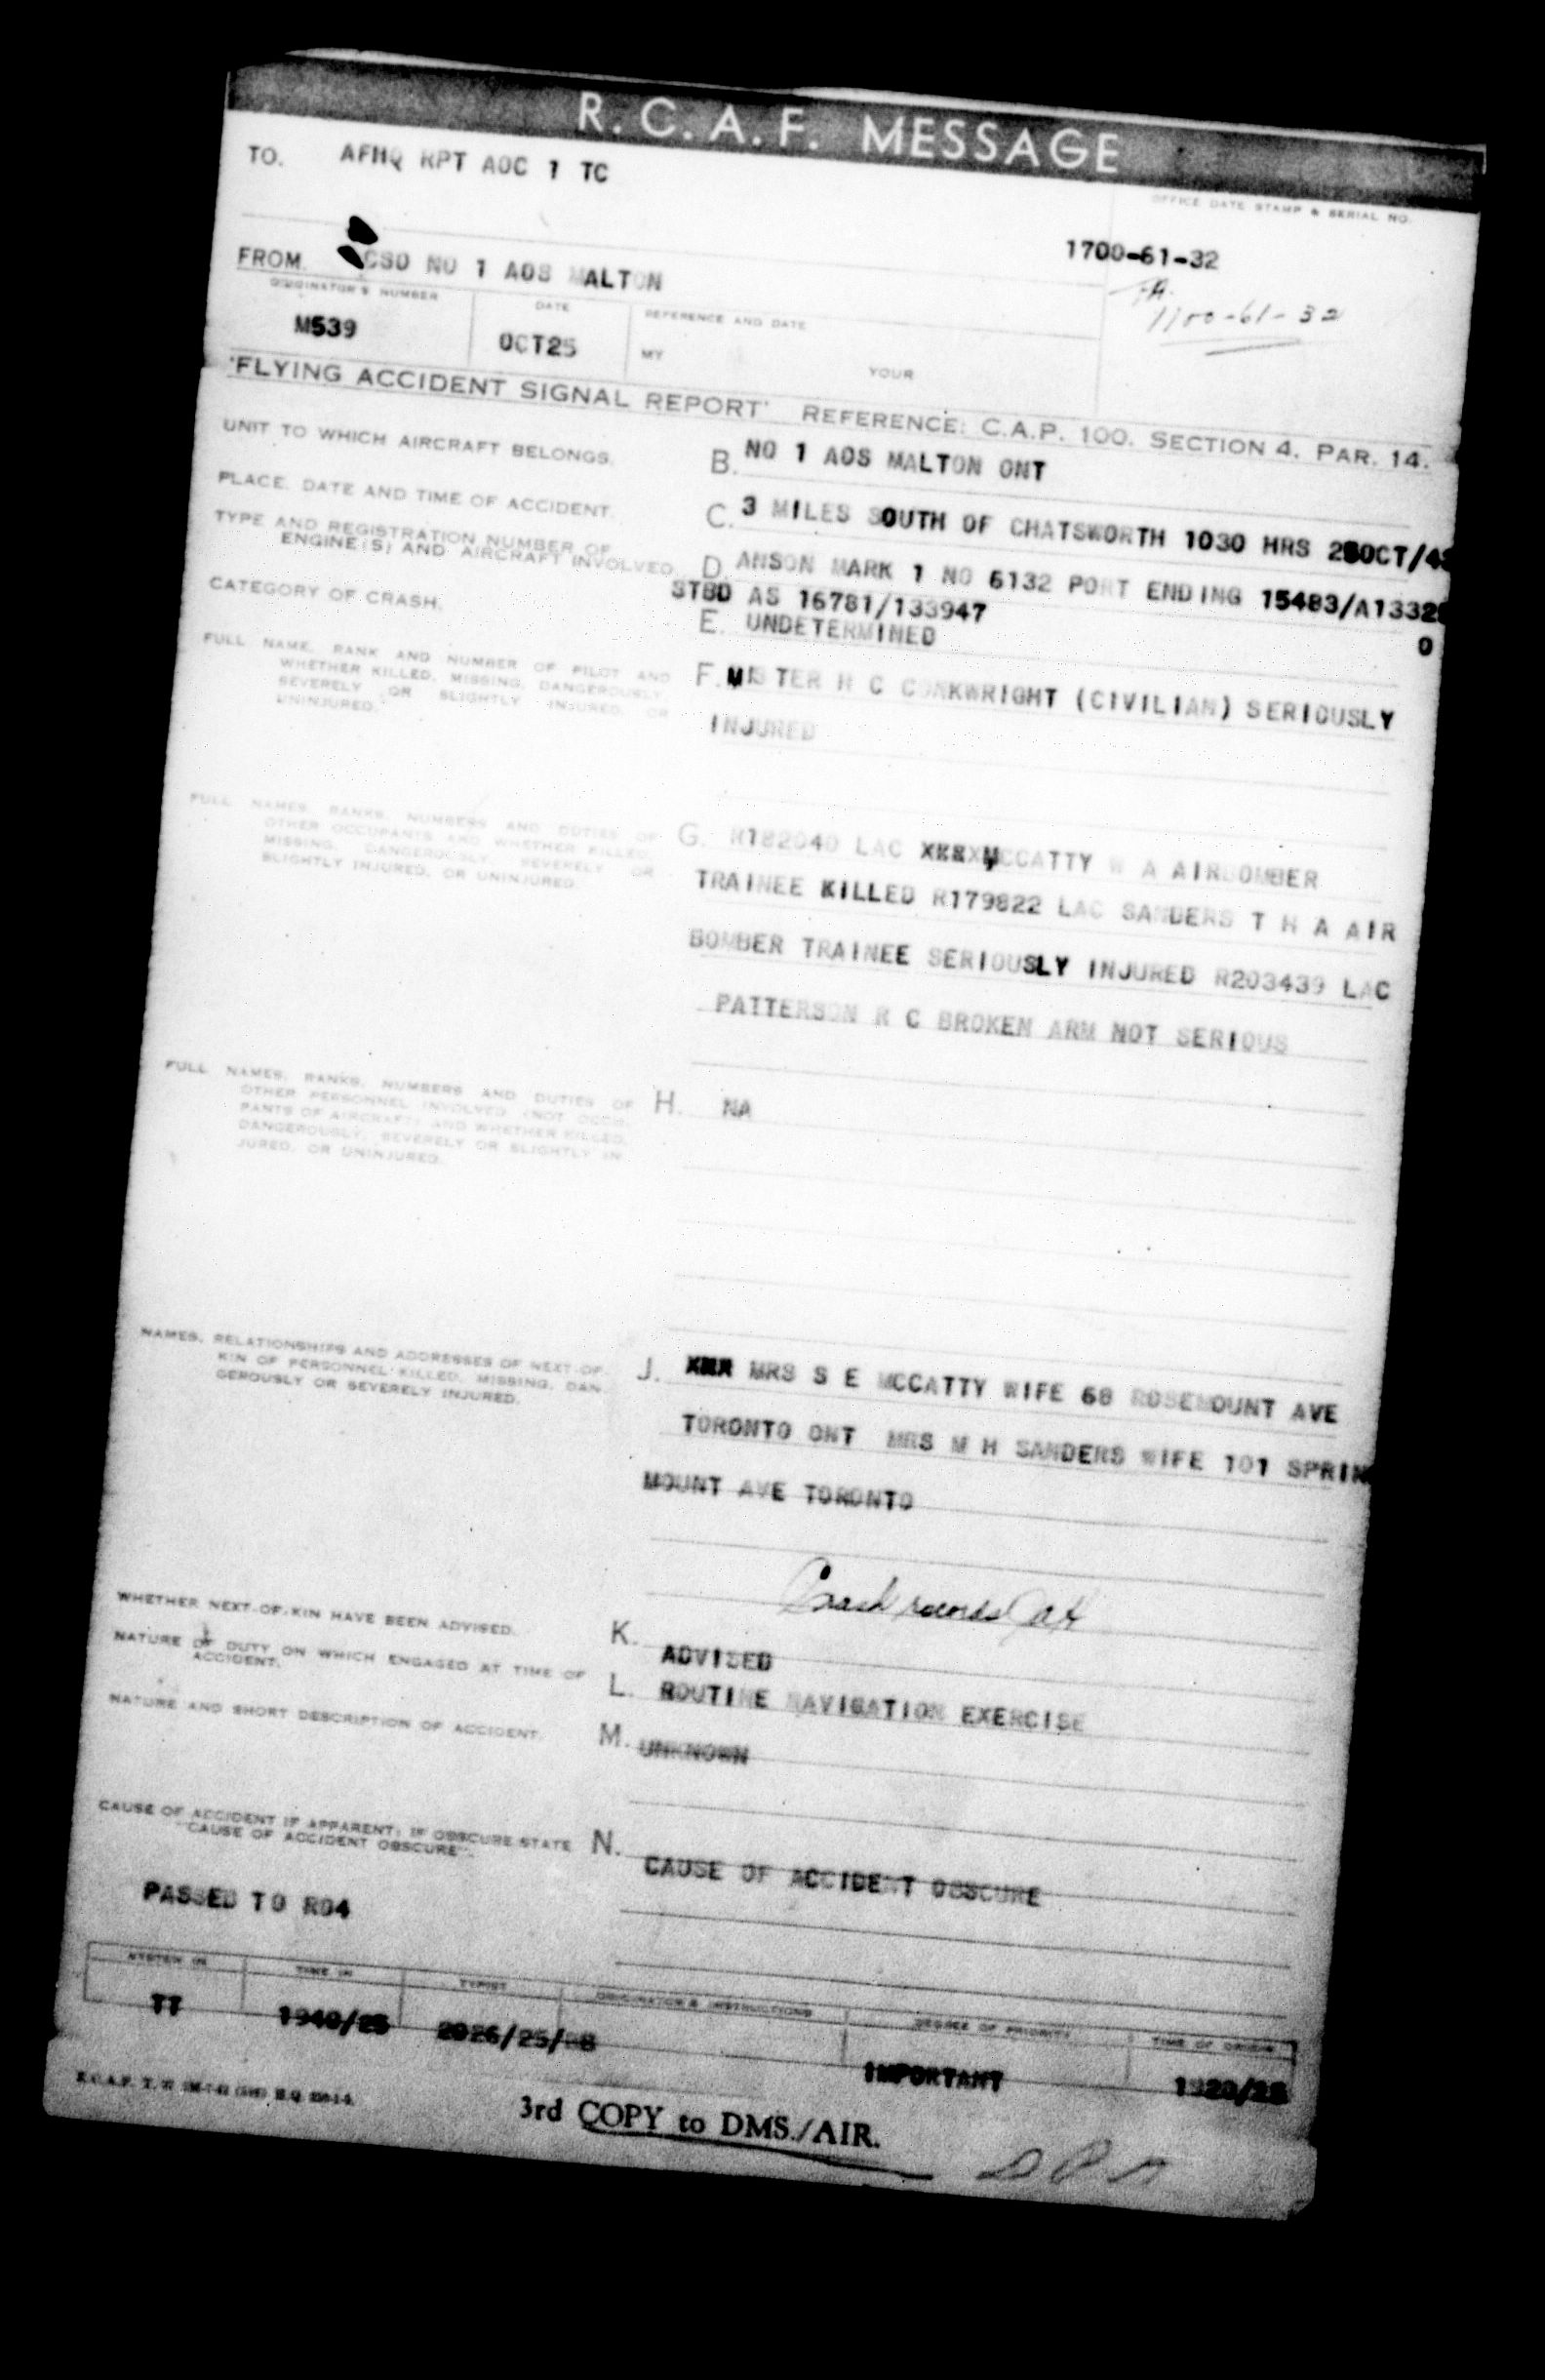 R.C.A.F. MESSAGE
TO. AFHQ RPT AOC 1 TC
OFFICE DATE STAMP & SERIAL NO.
1700-61-32
FROM CSO NO 1 AOS MALTON
1700-61-32
ORIGINATOR'S NUMBER DATE REFERENCE AND DATE
M539 OCT25 MY YOUR
"FLYING ACCIDENT SIGNAL REPORT" REFERENCE: C.A.P. 100. SECTION 4. PAR. 14.
UNIT TO WHICH AIRCRAFT BELONGS. B. NO 1 AOS MALTON ONT
PLACE, DATE AND TIME OF ACCIDENT. C. 3 MILES SOUTH OF CHATSWORTH 1030 HRS 25OCT/43
TYPE AND REGISTRATION NUMBER OF
ENGINE(S) AND AIRCRAFT INVOLVED D. ANSON MARK 1 NO 6132 PORT ENDING 15483/A1332
STBD AS 16781/133947
0
CATEGORY OF CRASH. E. UNDETERMINED
FULL NAME, RANK AND NUMBER OF PILOT AND
WHETHER KILLED, MISSING, DANGEROUSLY,
SEVERELY OR SLIGHTLY INJURED, OR
UNINJURED.
F. MISTER H C CONKWRIGHT (CIVILIAN) SERIOUSLY
INJURED
FULL NAMES, RANKS, NUMBERS AND DUTIES OF
OTHER OCCUPANTS AND WHETHER KILLED,
MISSING, DANGEROUSLY, SEVERELY OR
SLIGHTLY INJURED, OR UNINJURED.
G. R182040 LAC XXXX MCCATTY W A AIRBOMBER
TRAINEE KILLED R179822 LAC SANDERS T H A AIR
BOMBER TRAINEE SERIOUSLY INJURED R203439 LAC
PATTERSON R C BROKEN ARM NOT SERIOUS
FULL NAMES, RANKS, NUMBERS AND DUTIES OF
OTHER PERSONNEL INVOLVED (NOT OCCU-
PANTS OF AIRCRAFT) AND WHETHER KILLED,
DANGEROUSLY, SEVERELY OR SLIGHTLY IN-
JURED, OR UNINJURED.
H. NA
NAMES, RELATIONSHIPS AND ADDRESSES OF NEXT-OF-
KIN OF PERSONNEL KILLED, MISSING, DAN-
GEROUSLY OR SEVERELY INJURED.
J. XXX MRS S E MCCATTY WIFE 68 ROSEMOUNT AVE
TORONTO ONT MRS M H SANDERS WIFE 101 SPRIN
MOUNT AVE TORONTO
Crash records
WHETHER NEXT-OF-KIN HAVE BEEN ADVISED. K. ADVISED
NATURE OF DUTY ON WHICH ENGAGED AT TIME OF
ACCIDENT. L. ROUTINE NAVIGATION EXERCISE
NATURE AND SHORT DESCRIPTION OF ACCIDENT. M. UNKNOWN
CAUSE OF ACCIDENT IF APPARENT; IF OBSCURE STATE
"CAUSE OF ACCIDENT OBSCURE". N. CAUSE OF ACCIDENT OBSCURE
PASSED TO RO4
SYSTEM IN TIME IN TYPIST ORIGINATOR'S INSTRUCTIONS DEGREE OF PRIORITY TIME OF ORIGIN
TT 1940/25 2026/25/ IMPORTANT 1920/25
3rd COPY to DMS./AIR.